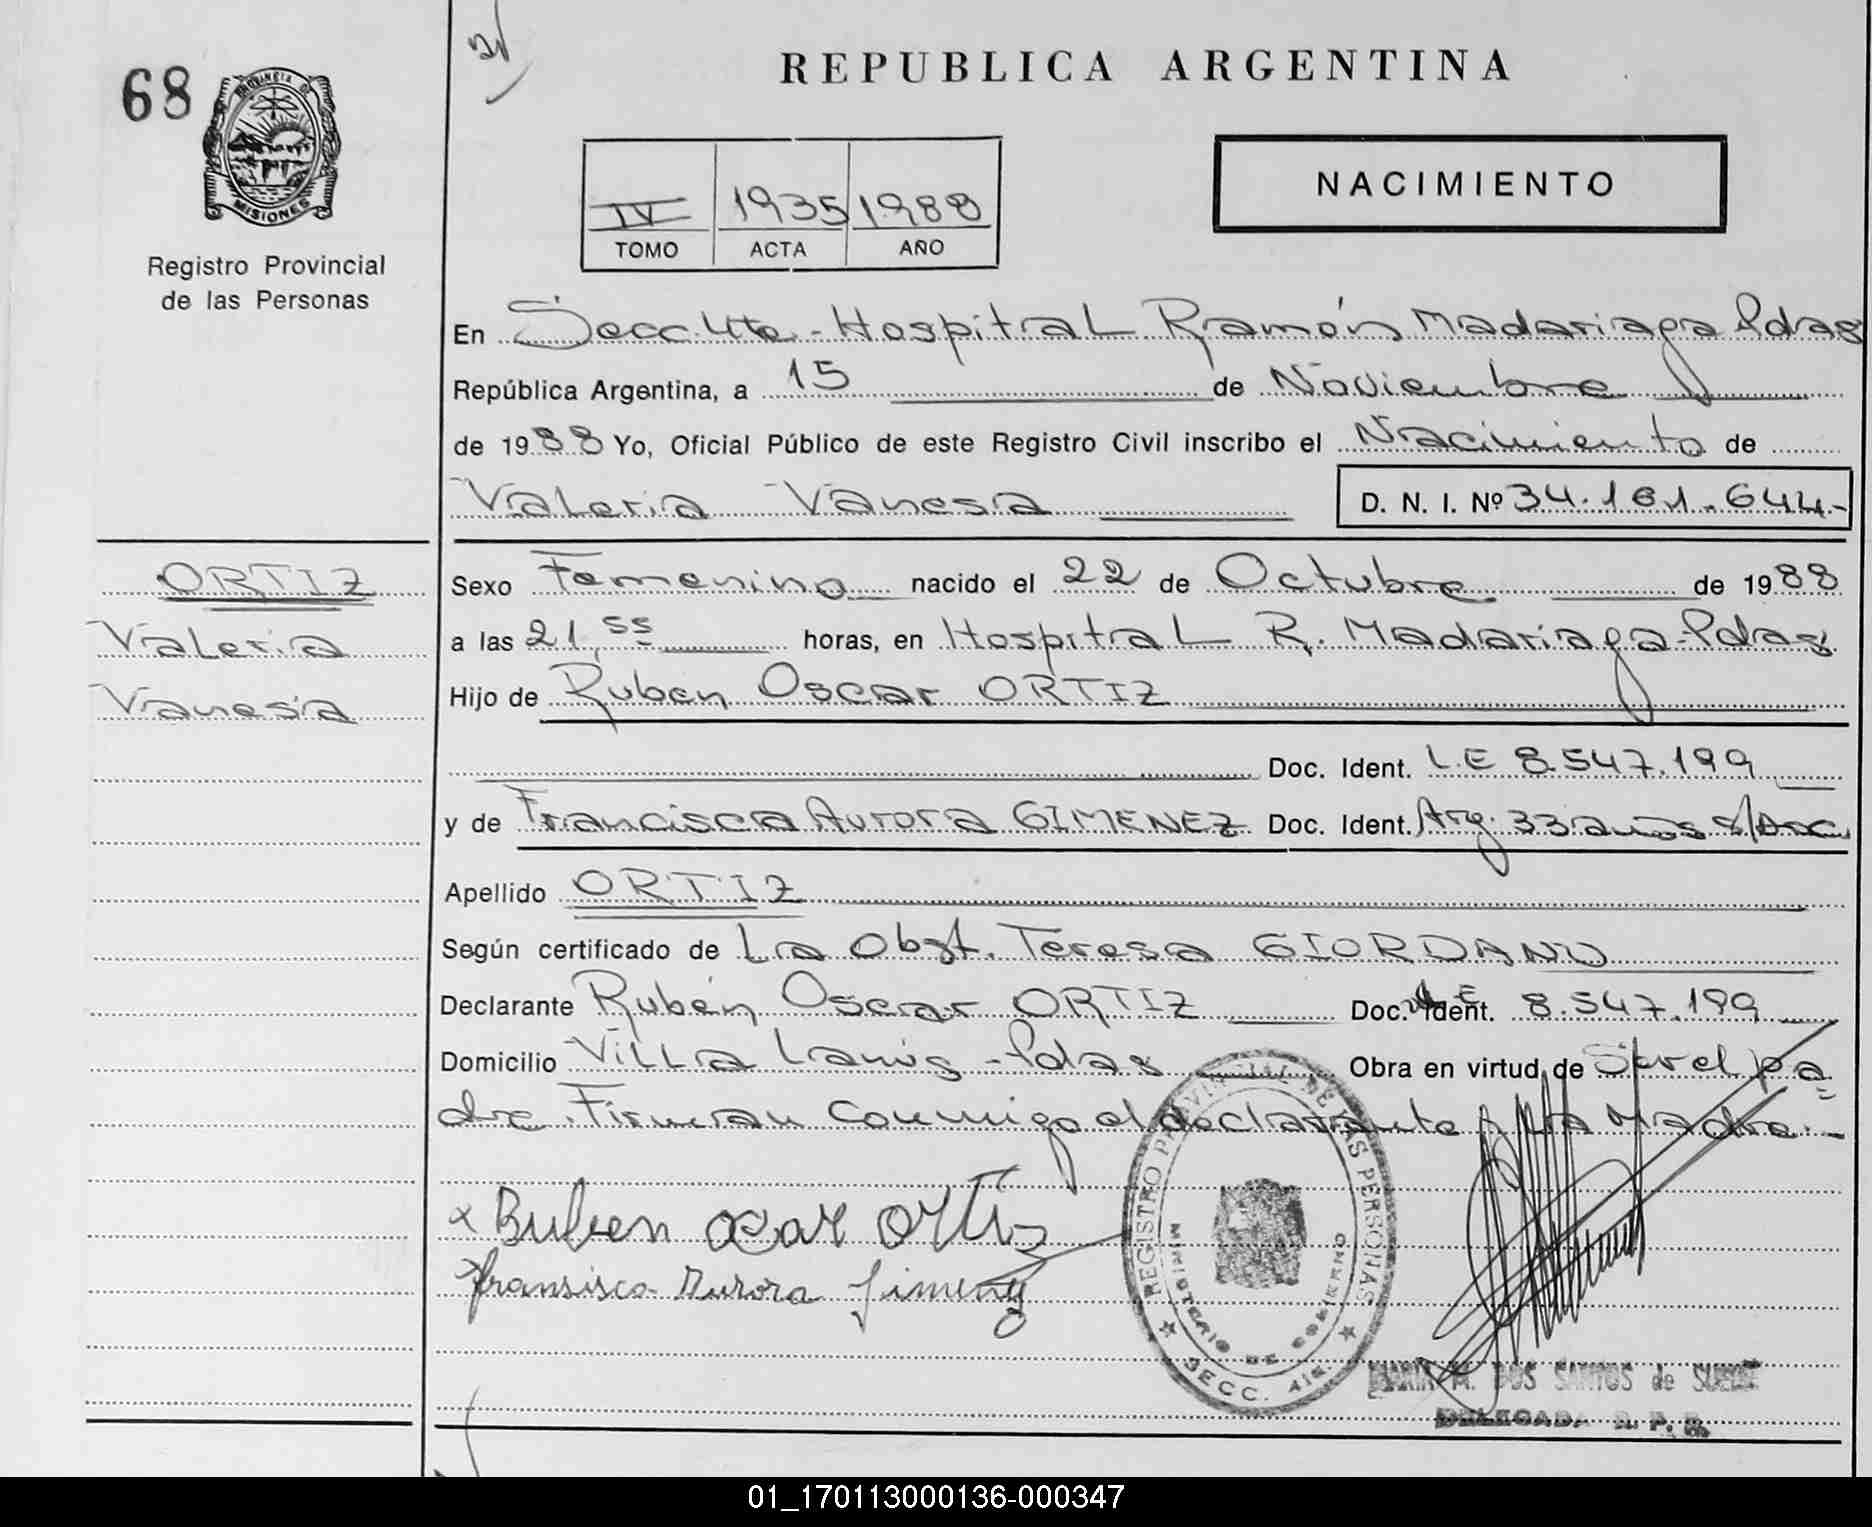 68
PROVINCIA DE
MISIONES
Registro Provincial
de las Personas
REPUBLICA ARGENTINA
IV 1935 1988
TOMO ACTA AÑO
NACIMIENTO
En Secc. 4ta - Hospital Ramón Madariaga Pdas
República Argentina, a 15 de Noviembre
de 1988 Yo, Oficial Público de este Registro Civil inscribo el Nacimiento de
Valeria Vanesa D. N. I. Nº 34.161.644-
ORTIZ
Valeria
Vanesa
Sexo Femenino nacido el 22 de Octubre de 1988
a las 21,55 horas, en Hospital R. Madariaga-Pdas
Hijo de Ruben Oscar ORTIZ
Doc. Ident. L.E 8.547.199
y de Francisca Aurora GIMENEZ Doc. Ident. Arg. 33 años s/Doc
Apellido ORTIZ
Según certificado de La Obst. Teresa GIORDANO
Declarante Rubén Oscar ORTIZ Doc. Ident. LE 8.547.199
Domicilio Villa Lanús - Pdas Obra en virtud de Ser el pa
dre. Firman conmigo el declarante y la Madre.-
x Buben oscar ortis
Fransisca Aurora Jimenez
REGISTRO PROVINCIAL DE LAS PERSONAS
MINISTERIO DE GOBIERNO
SECC. 4ta
MARIA M. DOS SANTOS de
DELEGADA R. P. P.
01_170113000136-000347